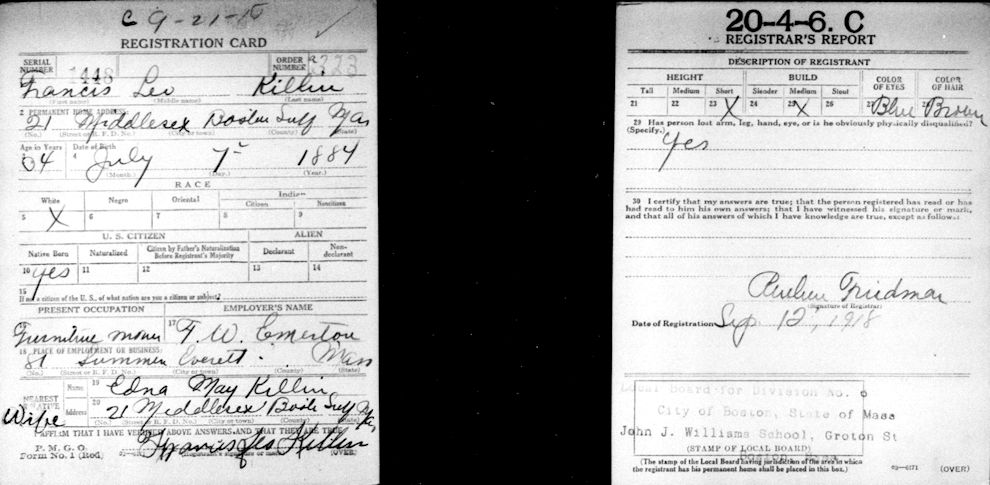 C 9-21-18
REGISTRATION CARD
SERIAL NUMBER 1448 ORDER NUMBER
Francis Leo Killin
(First name) (Middle name) (Last name)
2 PERMANENT HOME ADDRESS:
21 Middlesex Boston Suff Mas
(No.) (Street or R. F. D. No.) (City or town) (County) (State)
Age in Years Date of Birth
34 4 July 7 1884
(Month.) (Day.) (Year.)
RACE
White Negro Oriental Indian
Citizen Noncitizen
5 X 6 7 8 9
U. S. CITIZEN ALIEN
Native Born Naturalized Citizen by Father's Naturalization Before Registrant's Majority Declarant Non-declarant
10 yes 11 12 13 14
15
If not a citizen of the U. S., of what nation are you a citizen or subject?
PRESENT OCCUPATION EMPLOYER'S NAME
16 Furniture mover 17 F. W. Emerton
18 PLACE OF EMPLOYMENT OR BUSINESS:
81 Summer Everett Mass
(No.) (Street or R. F. D. No.) (City or town) (County) (State)
NEAREST RELATIVE Name 19 Edna May Killin
Wife Address 20 21 Middlesex Bost Suff
(No.) (Street or R. F. D. No.) (City or town) (County) (State)
I AFFIRM THAT I HAVE VERIFIED ABOVE ANSWERS AND THAT THEY ARE TRUE
P. M. G. O.
Form No. 1 (Red) Francis Leo Killin
(Registrant's signature or mark) (OVER)
20-4-6. C
REGISTRAR'S REPORT
DESCRIPTION OF REGISTRANT
HEIGHT BUILD COLOR OF EYES COLOR OF HAIR
Tall Medium Short Slender Medium Stout
21 22 23 X 24 25 X 26 27 Blue 28 Brown
29 Has person lost arm, leg, hand, eye, or is he obviously physically disqualified?
(Specify.) yes
30 I certify that my answers are true; that the person registered has read or has
had read to him his own answers; that I have witnessed his signature or mark,
and that all of his answers of which I have knowledge are true, except as follows:
Reuben Friedman
(Signature of Registrar)
Date of Registration Sep. 12, 1918
Local Board for Division No. 6
City of Boston, State of Mass
John J. Williams School, Groton St
(STAMP OF LOCAL BOARD)
Boston, Mass
(The stamp of the Local Board having jurisdiction of the area in which
the registrant has his permanent home shall be placed in this box.)
03-6171 (OVER)